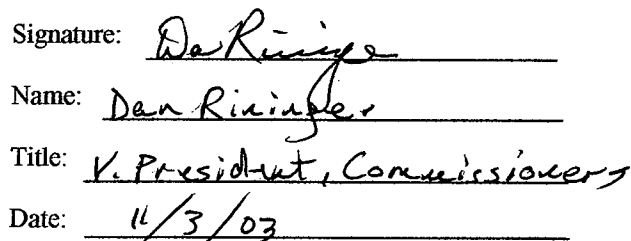 Signature: Da Rininge
Name: Dan Rininger
Title: V. President, Commissioners
Date: 11/3/03